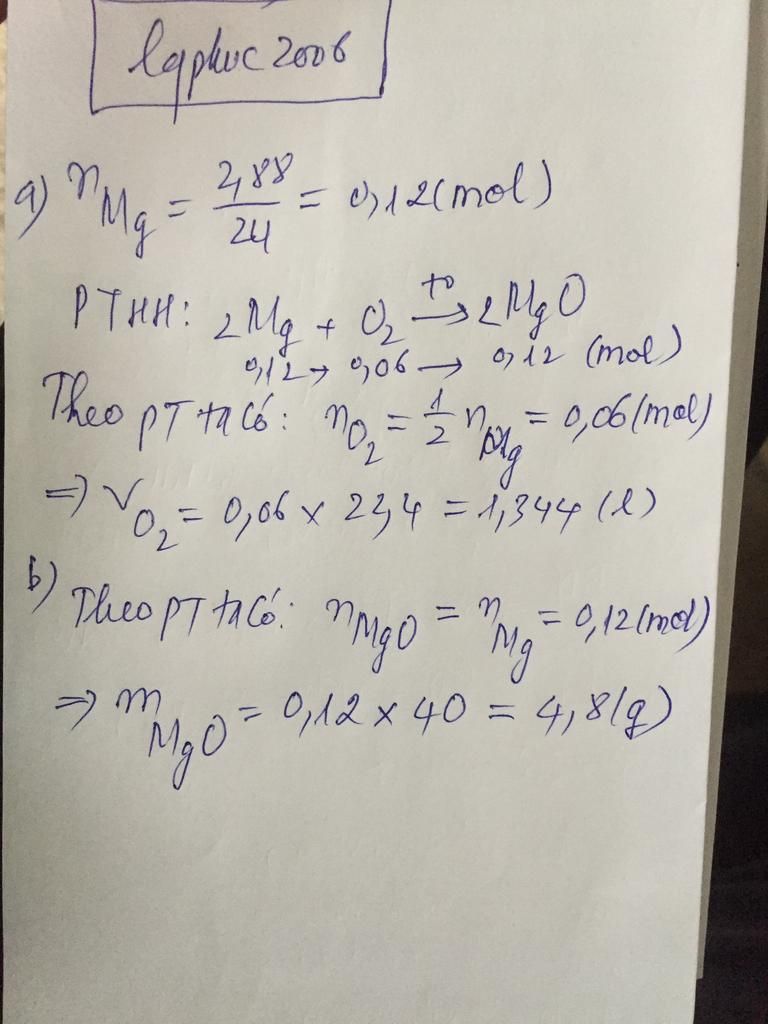 lqphuc2006
a) nMg = 2,88/24 = 0,12(mol)
PTHH: 2Mg + O2 —t°→ 2MgO
0,12 → 0,06 → 0,12 (mol)
Theo PT ta có: nO2 = 1/2 nMg = 0,06(mol)
=> VO2 = 0,06 × 22,4 = 1,344 (l)
b) Theo PT ta có: nMgO = nMg = 0,12(mol)
=> mMgO = 0,12 × 40 = 4,8(g)